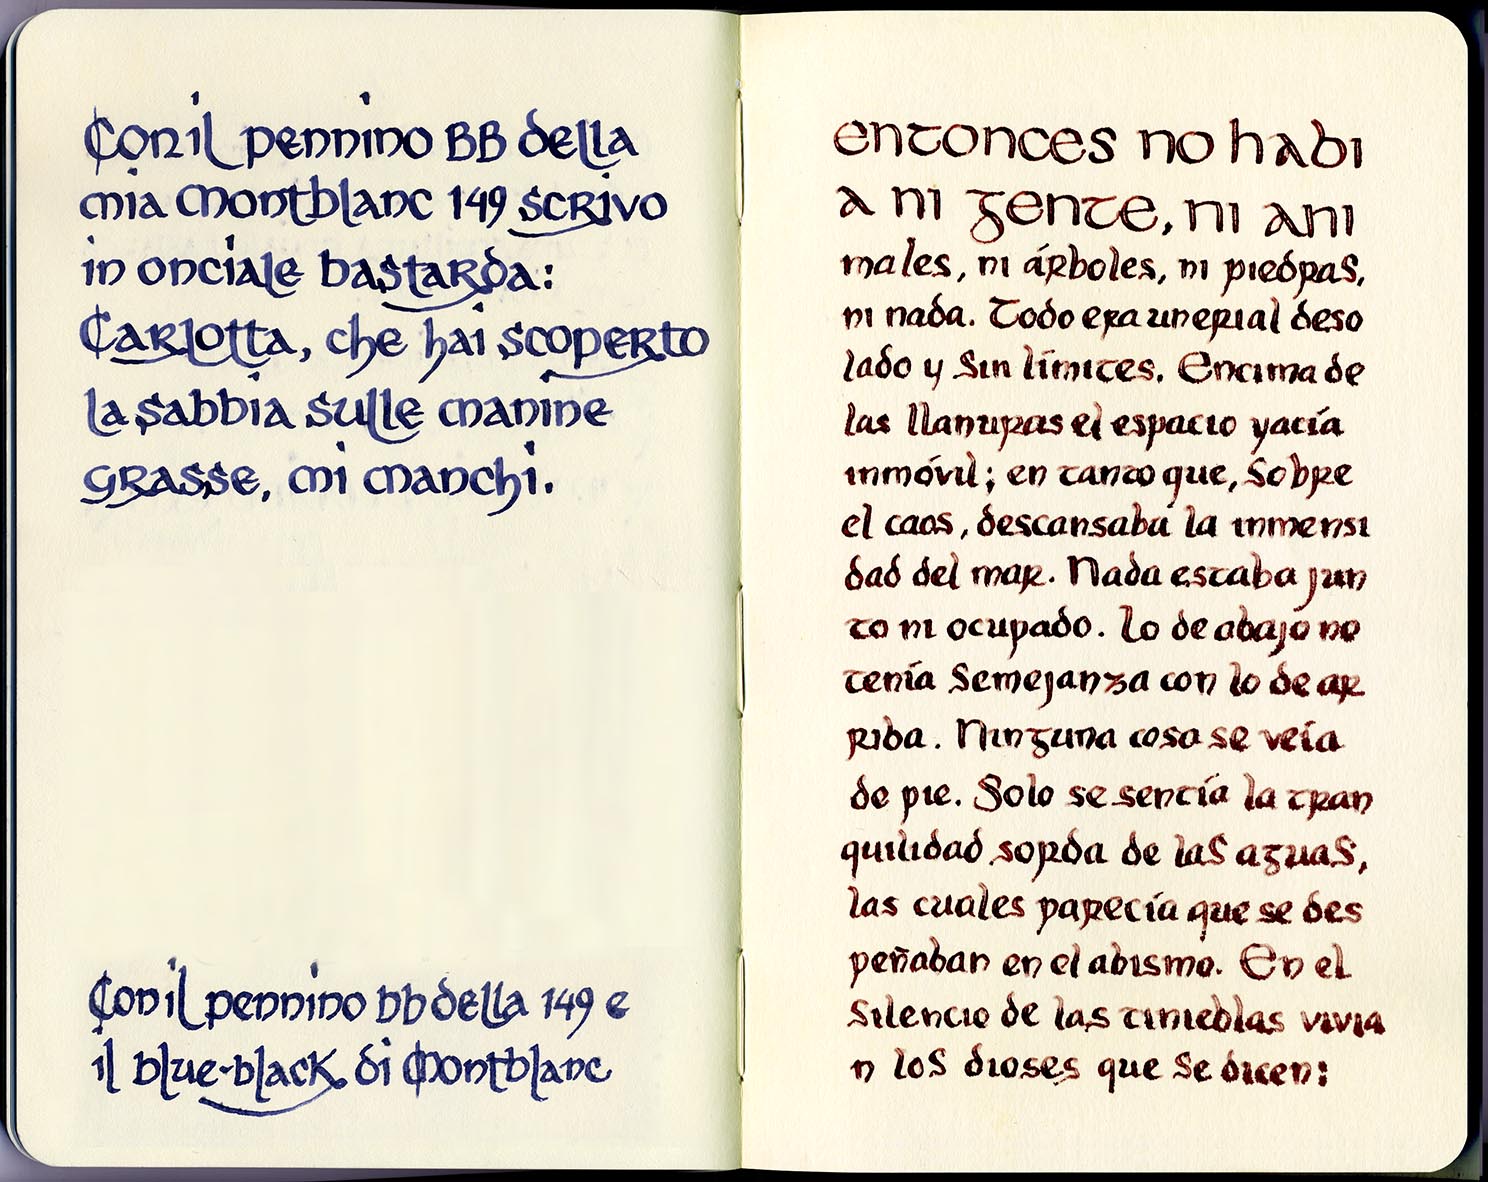 Con il pennino BB della
mia Montblanc 149 scrivo
in onciale bastarda:
Carlotta, che hai scoperto
la sabbia sulle manine
grasse, mi manchi.
Con il pennino bb della 149 e
il blue-black di Montblanc
entonces no habi
a ni gente, ni ani
males, ni árboles, ni piedras,
ni nada. Todo era un erial deso
lado y sin límites. Encima de
las llanuras el espacio yacía
inmóvil; en tanto que, sobre
el caos, descansaba la inmensi
dad del mar. Nada estaba jun
to ni ocupado. Lo de abajo no
tenía semejanza con lo de ar
riba. Ninguna cosa se veía
de pie. Solo se sentía la tran
quilidad sorda de las aguas,
las cuales parecía que se des
peñaban en el abismo. En el
silencio de las tinieblas vivia
n los dioses que se dicen: